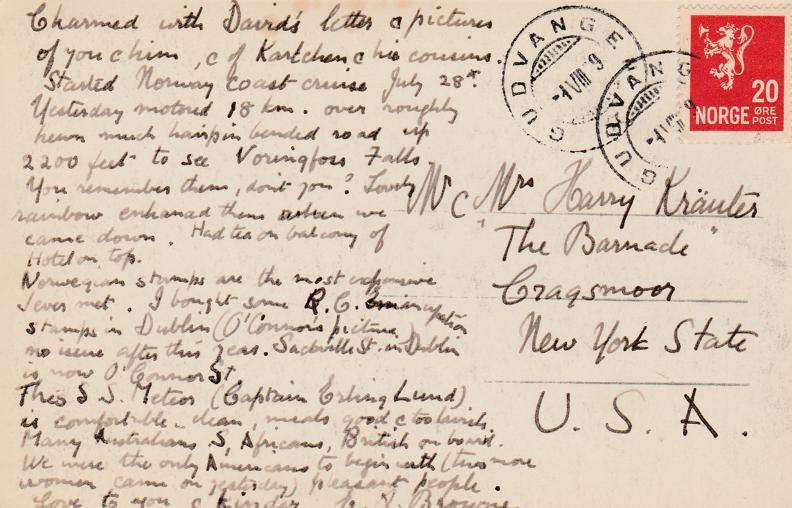 Charmed with David's letter c pictures
of you c him, c of Kartchen c his cousins.
Started Norway coast cruise July 28th.
Yesterday motored 18 km. over roughly
hewn much hairpin bended road up
2200 feet to see Voringfoss Falls
You remember them, don't you? Lovely
rainbow enhanced them when we
came down. Had tea on balcony of
Hotel on top.
Norwegian stamps are the most expensive
I ever met. I bought some R.C. Emancipation
stamps in Dublin (O'Connor's picture)
no issue after this year. Sackville St. in Dublin
is now O'Connor St
This S.S. Meteor (Captain Erling Lund)
is comfortable - clean, meals good c too lavish.
Many Australians, S. Africans, British on board.
We were the only Americans to begin with (two more
women came on yesterday) pleasant people.
Love to you c Kinder Browne
GUDVANGEN
-1 VIII 9
GUDVANG
-1 VIII 9
NORGE
20
ØRE
POST
Mr c Mrs Harry Kräuter
"The Barnade"
Cragsmoor
New York State
U.S.A.